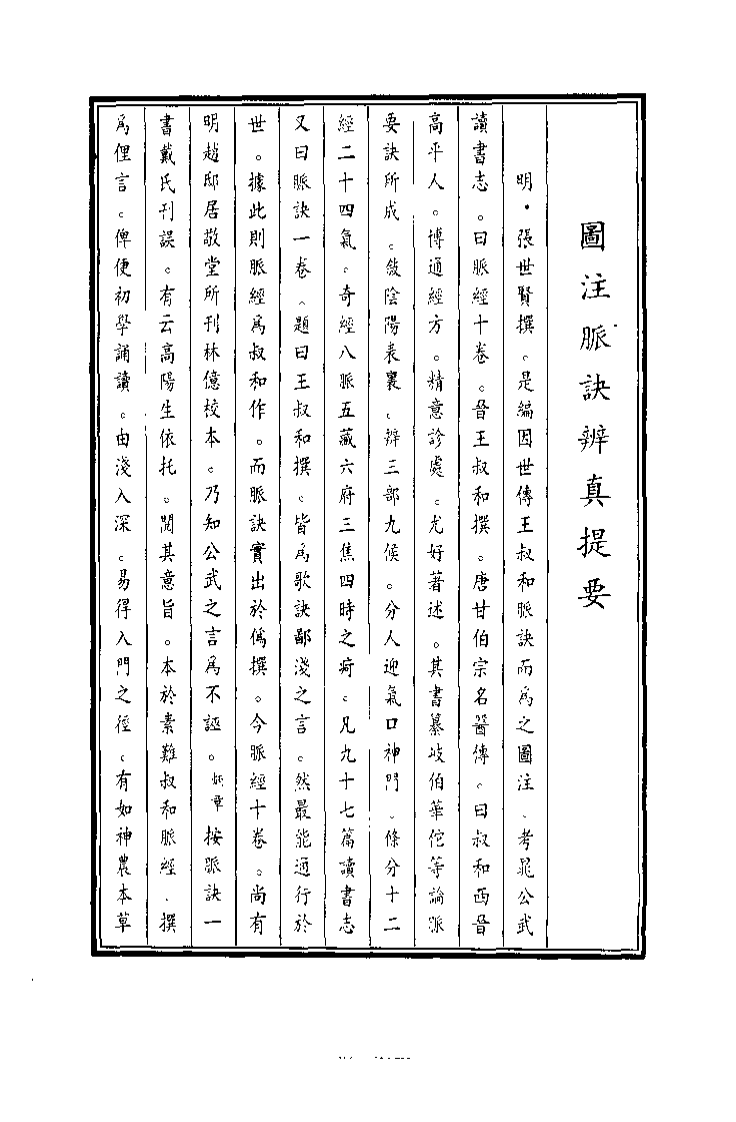 圖注脈訣辨真提要
明·張世賢撰。是編因世傳王叔和脈訣而為之圖注、考晁公武
讀書志。曰脈經十卷。晉王叔和撰。唐甘伯宗名醫傳。曰叔和西晉
高平人。博通經方。精意診處。尤好著述。其書纂岐伯華佗等論脈
要訣所成。敍陰陽表裏、辨三部九候。分人迎氣口神門、條分十二
經二十四氣。奇經八脈五藏六府三焦四時之疴。凡九十七篇讀書志
又曰脈訣一卷、題曰王叔和撰、皆為歌訣鄙淺之言。然最能通行於
世。據此則脈經為叔和作。而脈訣實出於偽撰。今脈經十卷。尚有
明趙邸居敬堂所刊林億校本。乃知公武之言為不誣。炳章按脈訣一
書戴氏刊誤。有云高陽生依托。閱其意旨。本於素難叔和脈經、撰
為俚言。俾便初學誦讀。由淺入深。易得入門之徑、有如神農本草